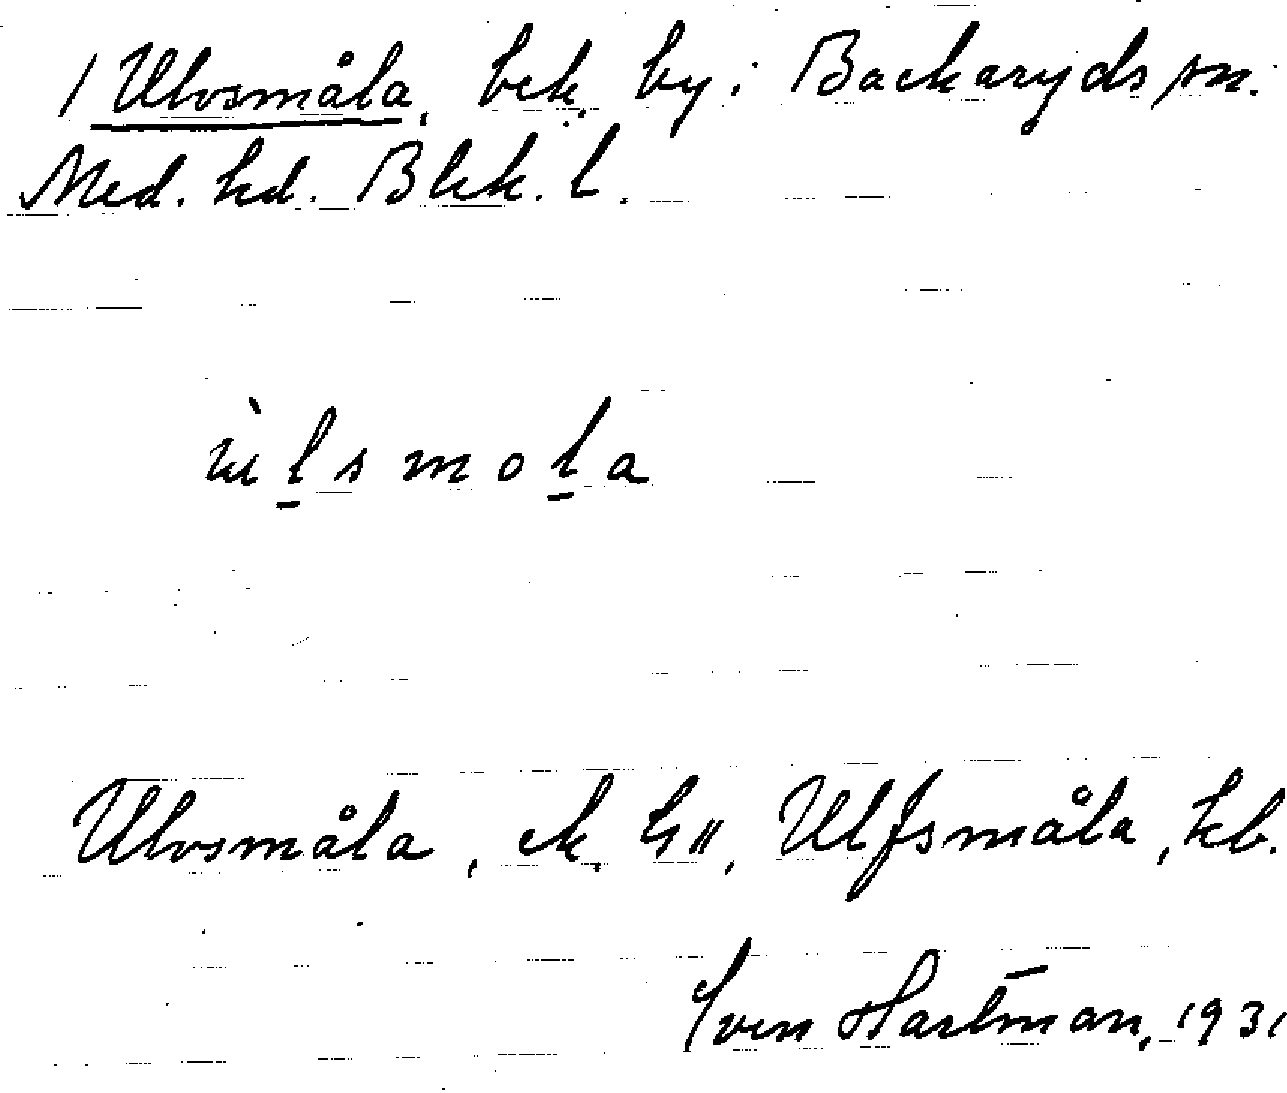 1 Ulvsmåla, bek. by i Backaryds sn.
Med. hd. Blek. l.
ùl̠smol̠a
Ulvsmåla, ek. Ulfsmåla, kb.
Sven Hartman, 1931